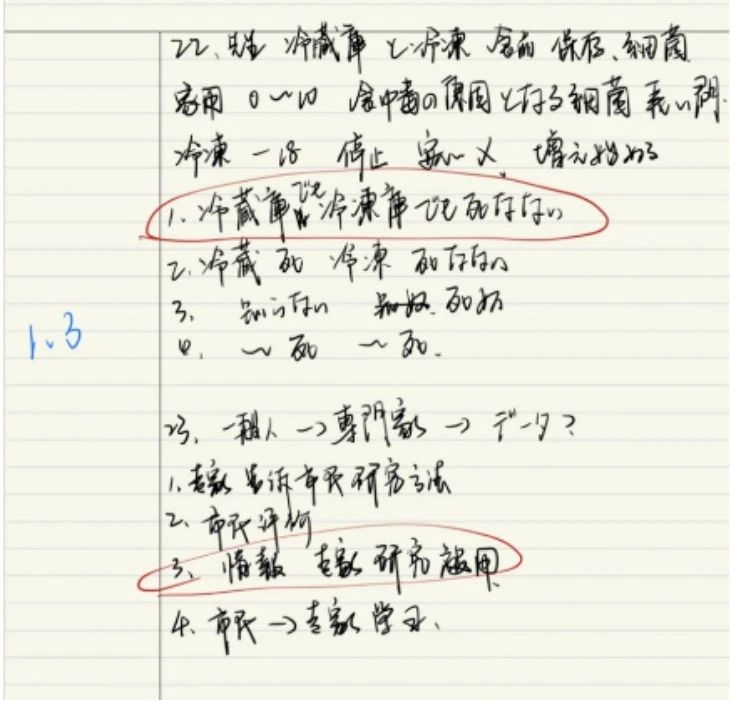 22. 先生 冷蔵庫 と 冷凍 食品 保存、細菌
家用 0〜10 食中毒の原因となる細菌 長い間
冷凍 -18 停止 安い X 増え始める
1. 冷蔵庫でも冷凍庫でも死なない
2. 冷蔵 死 冷凍 死なない
3. 死なない 死ぬ
4. 〜死 〜死.
1、3
23. 一般人 → 専門家 → データ?
1. 专家 告诉 市民 研究方法
2. 市民 评价
3. 情報 专家 研究 被用
4. 市民 → 专家 学习.